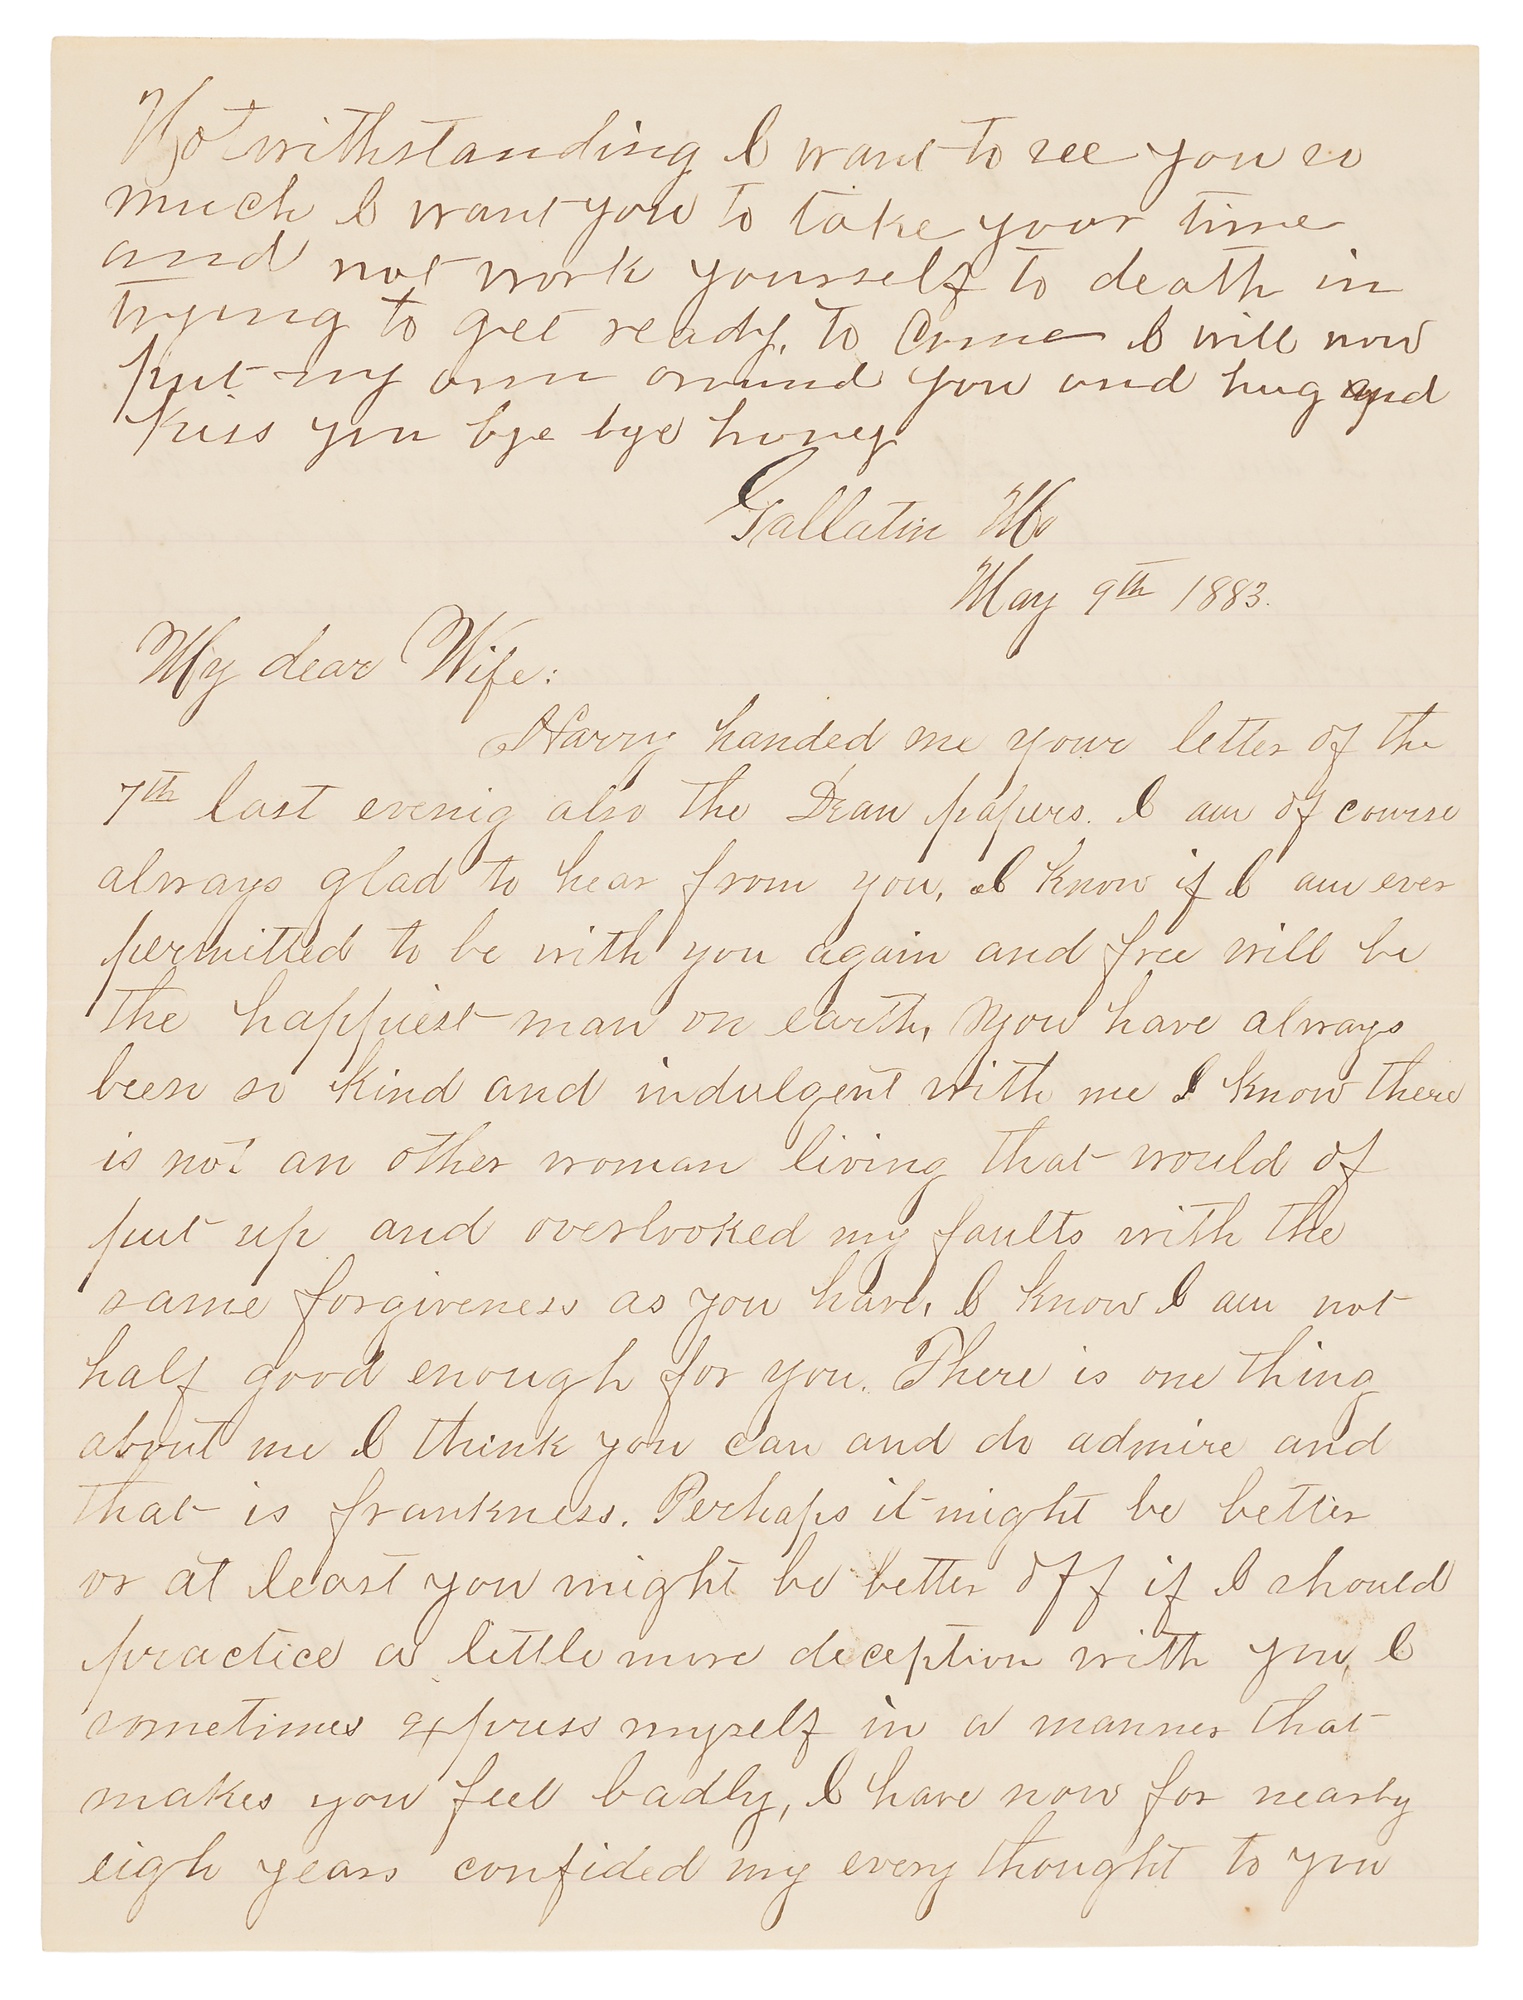 Notwithstanding I want to see you so
much I want you to take your time
and not work yourself to death in
trying to get ready, to come I will now
put my arm around you and hug and
kiss you bye bye honey
Gallatin Mo
May 9th 1883.
My dear Wife:
Harry handed me your letter of the
7th last evenig also the Dean papers. I am of course
always glad to hear from you, I know if I am ever
permitted to be with you again and free will be
the happiest man on earth, you have always
been so kind and indulgent with me I know there
is not an other woman living that would of
put up and overlooked my faults with the
same forgiveness as you have, I know I am not
half good enough for you. There is one thing
about me I think you can and do admire and
that is frankness. Perhaps it might be better
or at least you might be better off if I should
practice a little more deception with you, I
sometimes express myself in a manner that
makes you feel badly, I have now for nearby
eigh years confided my every thought to you